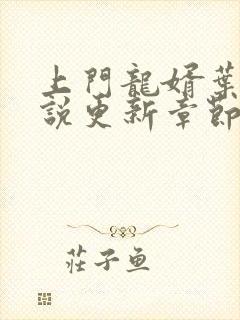 上門龍婿葉
説更新章節
莊子魚